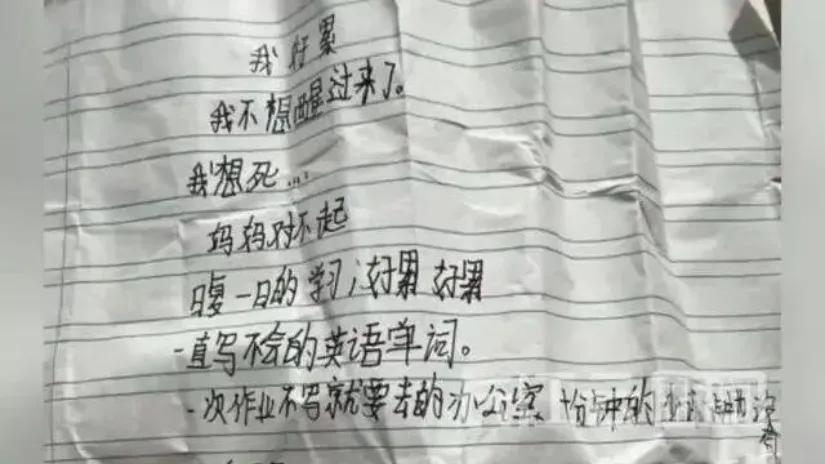 我好累
我不想醒过来了。
我想死...
妈妈对不起
日复一日的学习,好累 好累
一直写不会的英语单词。
一次作业不写就要去的办公室 十分钟的
没有